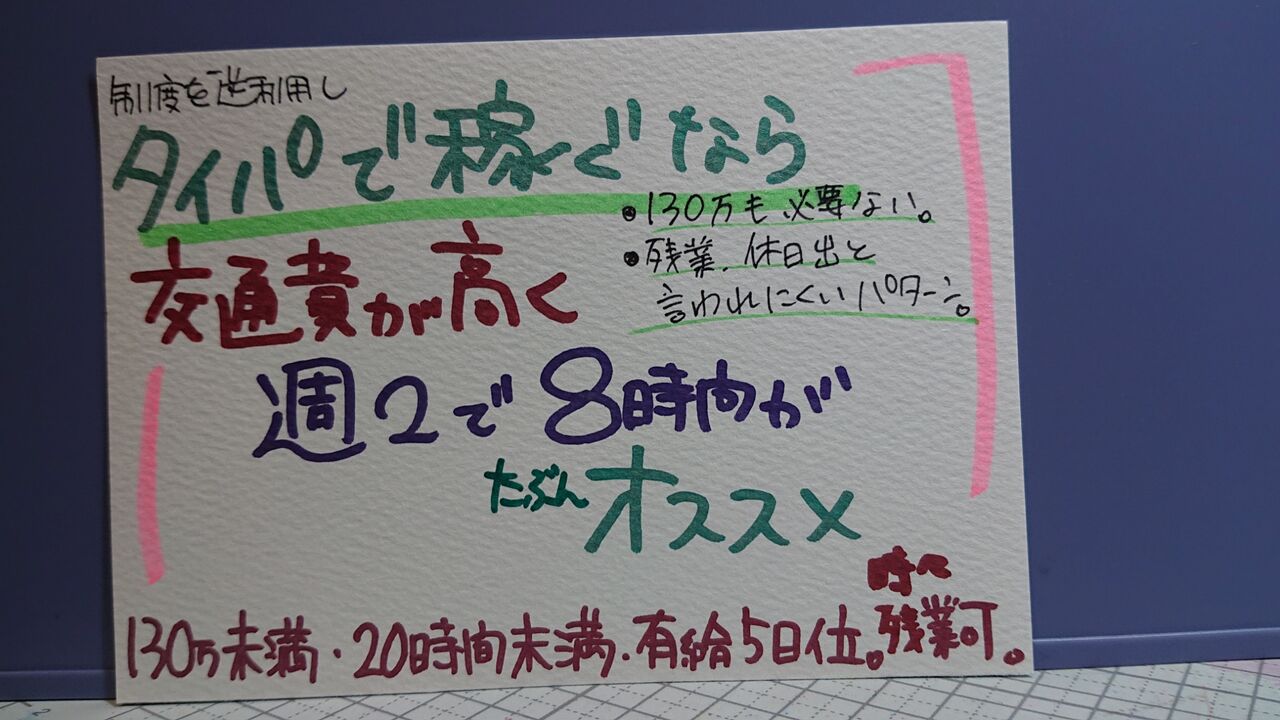 制度を逆利用し
タイパで稼ぐなら
・130万も必要ない。
・残業、休日出と
言われにくいパターン。
交通費が高く
週2で8時間が
たぶんオススメ
時々
130万未満・20時間未満、有給5日位。残業可。